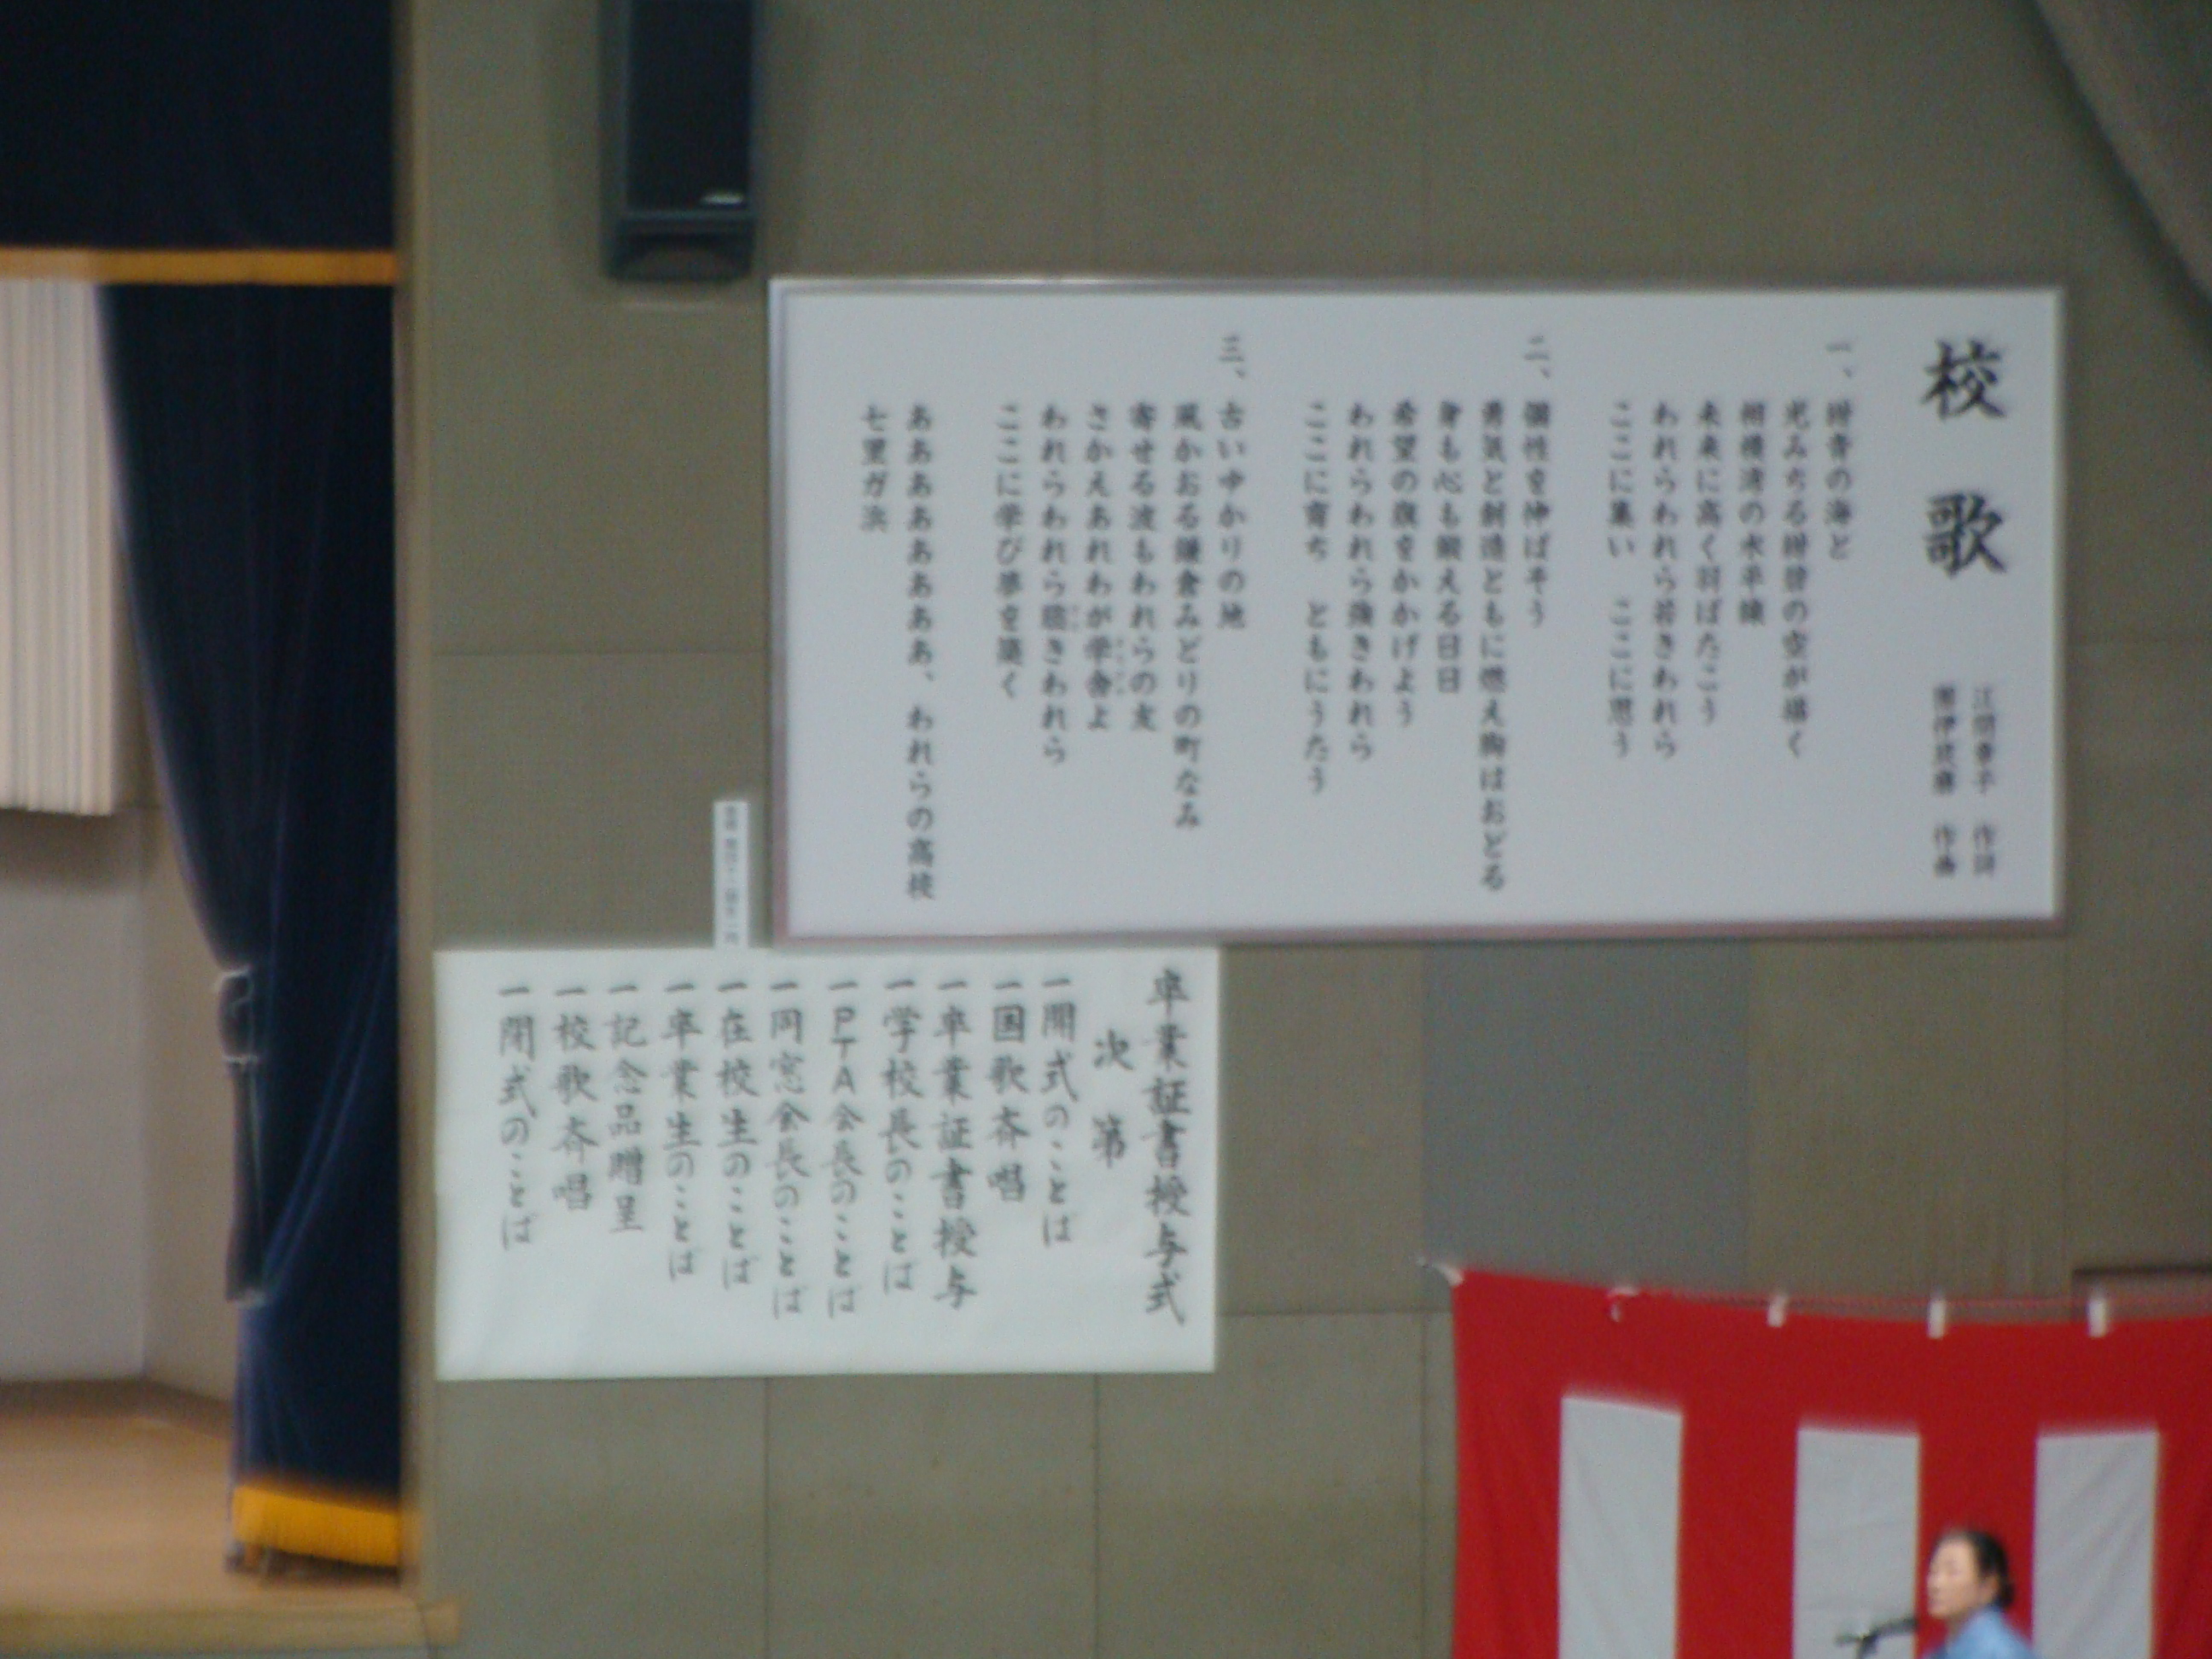 校歌
江間章子 作詞
團伊玖磨 作曲
一、紺青の海と
光みちる紺碧の空が描く
相模湾の水平線
未来に高く羽ばたこう
われらわれら若きわれら
ここに集い ここに思う
二、個性を伸ばそう
勇気と創造ともに燃え胸はおどる
身も心も鍛える日日
希望の旗をかかげよう
われらわれら強きわれら
ここに育ち ともにうたう
三、古いゆかりの地
風かおる鎌倉みどりの町なみ
寄せる波もわれらの友
さかえあれわが学舎よ
われらわれら聡きわれら
ここに学び夢を築く
ああああああああ、われらの高校
七里ガ浜
卒業証書授与式
次第
一開式のことば
一国歌斉唱
一卒業証書授与
一学校長のことば
一PTA会長のことば
一同窓会長のことば
一在校生のことば
一卒業生のことば
一記念品贈呈
一校歌斉唱
一閉式のことば